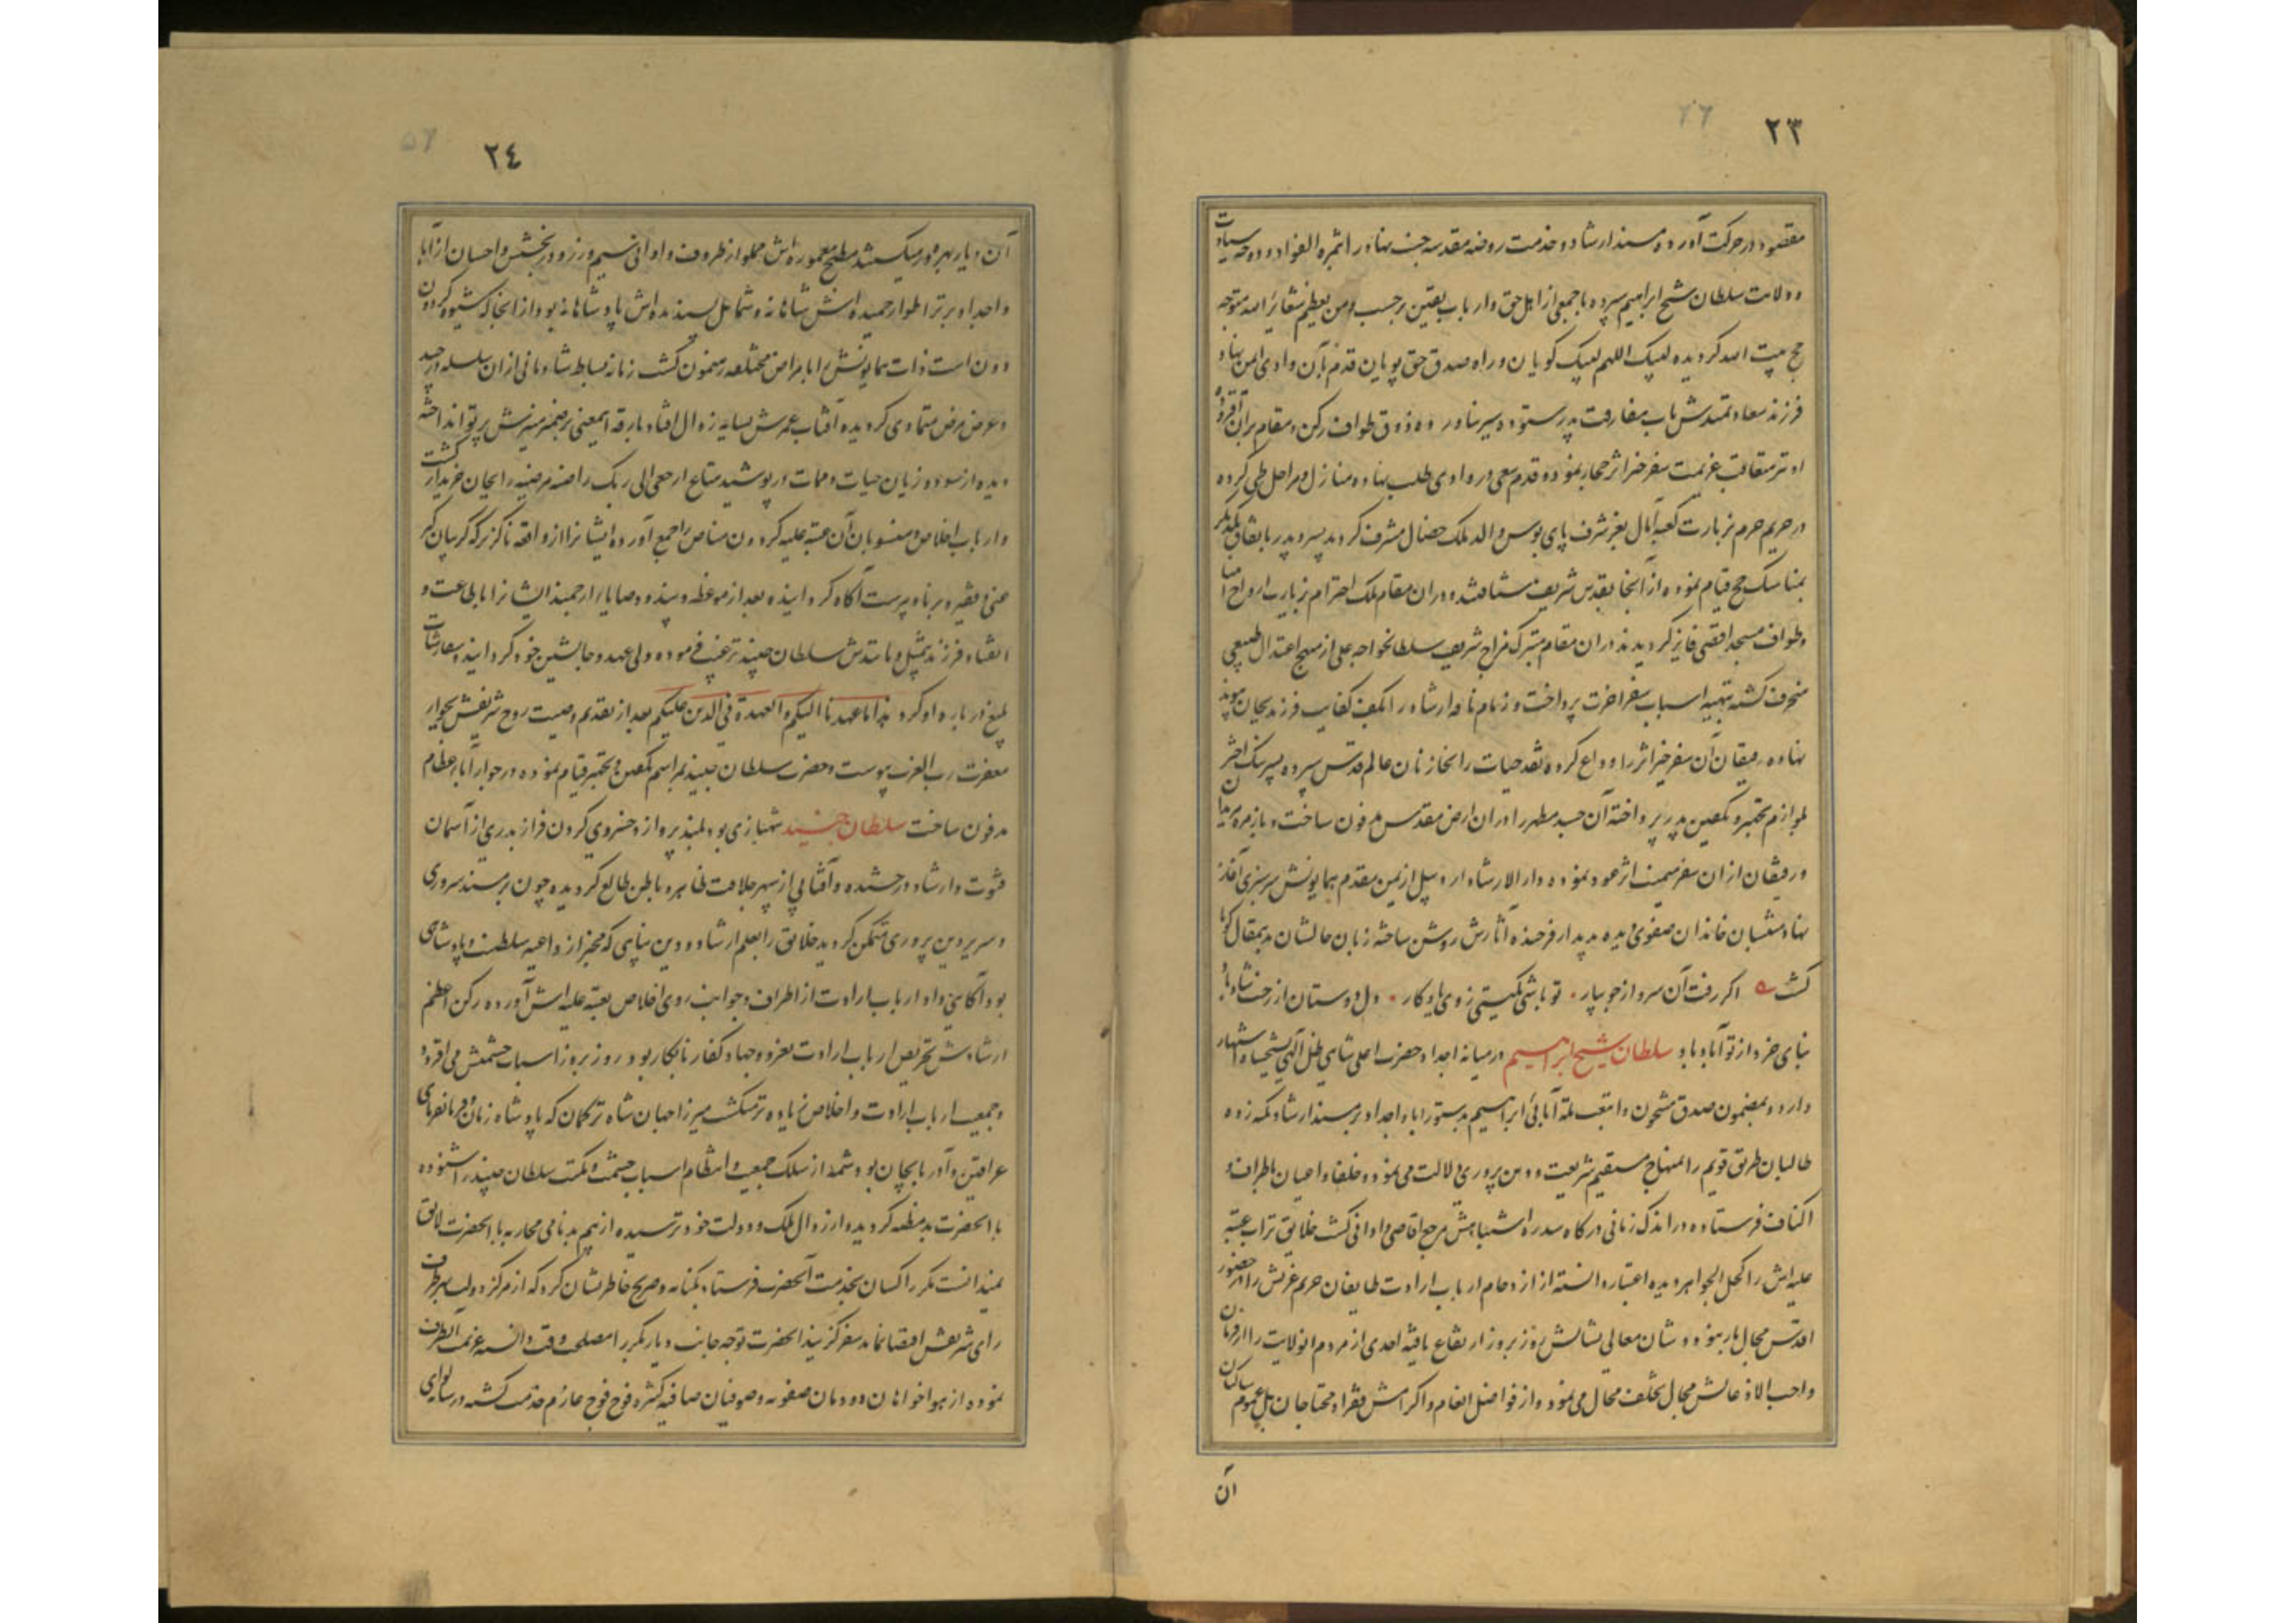 ۲۳
مقصود در حرکت آورده و مسند ارشاد و خدمت روضه مقدسه جنت نهاد را بثمره الفواد و دوحه سیادت
و ولایت سلطان شیخ ابراهیم سپرده با جمعی از اهل حق و ارباب یقین برحسب ومن یعظم شعائر الله متوجه
حج بیت الله گردیده لبیک اللهم لبیک گویان در راه صدق حق پویان قدم بآن وادی ایمن نهاد
فرزند سعادتمندش تاب مفارقت پدر ستوده سیر نیاورده ذوق طواف رکن و مقام بران افزوده
او نیز متعاقب عزیمت سفر خیر اثر حجاز نموده قدم سعی در وادی طلب نهاده منازل و مراحل طی کرده
در حریم حرم بزیارت کعبه آمال بعز شرف پای بوس والد ملک خصال مشرف گردید پسر و پدر باتفاق یکدیگر
بمناسک حج قیام نموده از آنجا بقدس شریف شتافتند و دران مقام ملک احترام بزیارت ارواح انبیا
وطواف مسجد اقصی فایز گردیدند دران مقام متبرک مزاج شریف سلطانخواجه علی از منهج اعتدال طبیعی
منحرف گشته بتهیه اسباب سفر اخرت پرداخت و زمام ناقه ارشاد را بکف کفایت فرزند بجان پیوند
نهاده رفیقان آن سفر خیر اثر را وداع کرده نقد حیات را بخازنان عالم قدس سپرده پسر نیک اختر
لوازم تجهیز و تکفین پدر پرداخته آن جسد مطهر را دران ارض مقدس مدفون ساخت و بازمره مریدان
ورفیقان ازان سفر میمنت اثر عود نموده دار الارشاد اردبیل از یمن مقدم همایونش سرسبزی آغاز
نهاد منتسبان خاندان صفوی دیده بدیدار فرخنده آثارش روشن ساخته زبان حالشان بدین مقال گویا
گشت ه اگر رفت آن سرو از جویبار · تو باشی بگیتی ز وی یادگار · دل دوستان از رخت شاد باد
بنای خرد از تو آباد باد سلطان شیخ ابراهیم در میانه اجداد حضرت اعلی شاهی ظل الهی بشیخشاه اشتهار
دارد و بمضمون صدق مشحون واتبعت ملة آبائی ابراهیم بدستور اباء و اجداد بر مسند ارشاد تکیه زده
طالبان طریق قویم را بمنهاج مستقیم شریعت و دین پروری دلالت می نمود و خلفا و اعیان باطراف و
اکناف فرستاده در اندک زمانی درگاه سدره اشتباهش مرجع اقاصی و ادانی گشت خلایق تراب عتبه
علیه اش را کحل الجواهر دیده اعتبار دانسته از ازدحام ارباب ارادت طایفان حریم عزتش را در حضور
اقدس مجال بار نبود و شان معالی نشانش روز بروز ارتفاع یافته احدی از مردم انولایت را از فرمان
واجب الاذعانش مجال تخلف محال می نمود و از فواضل انعام و اکرامش فقرا و محتاجان بل عموم ساکنان
آن
۲٤
آن دیار بهره ور میگشتند مطبخ معموره اش مملو از ظروف و اوانی سیم و زر و در بخشش و احسان از آبا
واجداد برتر اطوار حمیده اش شاهانه و شمایل پسندیده اش پادشاهانه بود از انجا که شیوه گردون
دون است ذات همایونش را بامراض مختلفه رهنمون گشت زمانه بساط شادمانی ازان سلسله درچید
وعرض مرض متمادی گردیده آفتاب عمرش بسایه زوال افتاد بارقه اینمعنی بر ضمیر منیرش پرتو انداخته
دیده از سود و زیان حیات و ممات در پوشید متاع ارجعی الی ربک راضیة مرضیة را بجان خریدار گشت
وارباب اخلاص و منسوبان آن عتبه علیه گردون مناص را جمع آورده ایشانرا از واقعه ناگزیر که گریبان گیر
غنی و فقیر و برنا و پیرست آگاه گردانیده بعد از موعظه و پند و وصایا ارجمند ایشانرا باطاعت و
انقیاد فرزند بیمثل و مانندش سلطان جنید ترغیب فرموده ولی عهد و جانشین خود گردانید و سفارشات
بلیغ درباره او کرد بدانا عهدنا الیکم والعهدة فی الدین علیکم بعد از تقدیم وصیت روح شریفش بجوار
مغفرت رب العزت پیوست و حضرت سلطان جنید بمراسم تکفین و تجهیز قیام نموده در جوار آباء عظام
مدفون ساخت سلطان جنید شهبازی بود بلند پرواز و خسروی گردون فراز بدری از آسمان
فتوت و ارشاد درخشنده و آفتابی از سپهر جلافت ظاهر و باطن طالع گردیده چون بر مسند سروری
وسریر دین پروری متمکن گردید خلایق را بعلم ارشاد و دین پناهی که مخبر از داعیه سلطنت و پادشاهی
بود آگاهی داد ارباب ارادت از اطراف و جوانب روی اخلاص بعتبه علیه اش آورده رکن اعظم
ارشادش تحریص ارباب ارادت بغزو و جهاد کفار نابکار بود و روز بروز اسباب حشمتش می افزود
وجمعیت ارباب ارادت و اخلاص زیاده تر میگشت میرزا جهان شاه ترکمان که پادشاه زمان و فرمانفرمای
عراقین و آذربایجان بود شمه از سلک جمعیت و انتظام اسباب حشمت و مکنت سلطان جنید را شنوده
با انحضرت بدمظنه گردیده و از زوال ملک و دولت خود ترسیده از بیم بدنامی محاربه با انحضرت لایق
نمیدانست مکرر اکسان بخدمت آنحضرت فرستاد بکنایه و صریح خاطر نشان کرد که از مرکز دولت بهر طرف
رای شریفش اقتضا نماید سفر گزیند انحضرت توجه جانب دیاربکر را مصلحت وقت دانسته عزیمت آنطرف
نموده از هواخواهان دودمان صفویه و صوفیان صافیه کثیره فوج فوج عازم خدمت گشته در سایه لوای